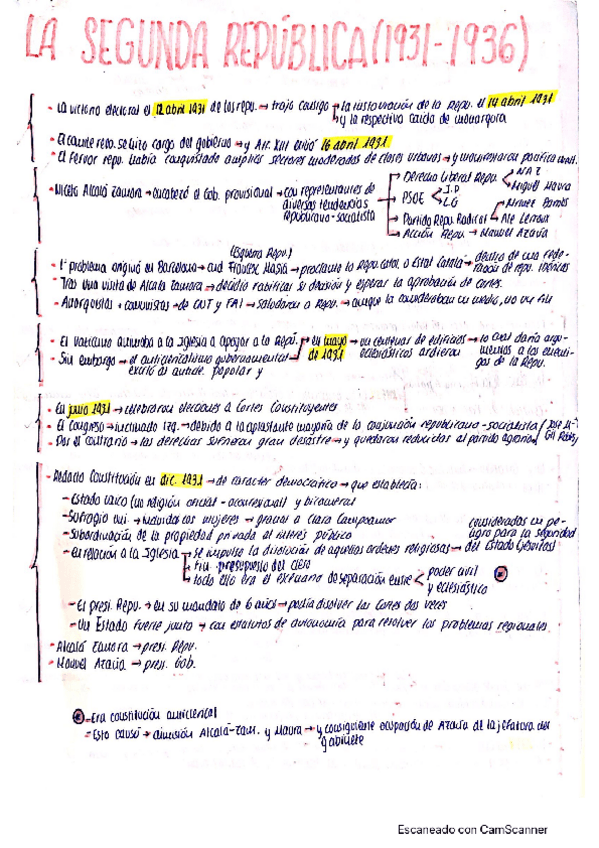 LA SEGUNDA REPÚBLICA (1931-1936)
- La victoria electoral el 12 abril 1931 de los repu. → trajo consigo → la instauración de la Repu. el 14 abril 1931
y la respectiva caída de monarquía
- El comité repu. se hizo cargo del gobierno → y Alf. XIII exilió 16 abril 1931
- El Fervor repu. había conquistado amplios sectores moderados de clases urbanas → y
- Niceto Alcalá Zamora → encabezó el Gob. provisional → con representantes de diversas tendencias republicano-socialista
Derecha Liberal Repu. NAZ
Miguel Maura
PSOE I.P
LG
Partido Repu. Radical
Ale Lerroux
Acción Repu. → Manuel Azaña
(Esquerra Repu.)
- 1er problema originó en Barcelona → cuando Francesc Macià → proclamó la Repu. catal. o Estat Català → dentro de una federación de repu. ibéricas
- Tras una visita de Alcalá Zamora → decidió ratificar su decisión y esperar la aprobación de cortes.
- Anarquistas + comunistas → de CNT y FAI → saludaron a Repu. → aunque la consideraban un medio, no un fin
- El Vaticano animaba a la Iglesia a apoyar a la Repú.
- Sin embargo → el anticlericalismo gubernamental excitó al popular y
en mayo de 1931 → un centenar de edificios eclesiásticos ardieron → lo cual daría argumentos a los enemigos de la Repu.
- En junio 1931 → celebraron elecciones a Cortes Constituyentes
- El Congreso → inclinado izq. → debido a la aplastante mayoría de la conjunción republicano-socialista
- Por el contrario → las derechas sufrieron gran desastre → y quedaron reducidas al partido agrario (José Mª Gil Robles)
- Redactó Constitución en dic. 1931 → de carácter democrático → que establecía:
- Estado laico (no religión oficial - aconfesional) y bicameral
- Sufragio uni. → incluidas las mujeres → gracias a Clara Campoamor
- Subordinación de la propiedad privada al interés público
- en relación a la Iglesia → se impulsó la disolución de aquellas órdenes religiosas → consideradas un peligro para la seguridad del Estado (jesuitas)
fin presupuesto del clero
todo ello era el extremo de separación entre poder civil
y eclesiástico
- El presi. Repu. → en su mandato de 6 años → podía disolver las Cortes dos veces
- Un Estado fuerte junto → con estatutos de autonomía para resolver los problemas regionales
- Alcalá Zamora → presi. Repu.
- Manuel Azaña → presi. Gob.
- Era constitución anticlerical
- Esto causó → dimisión Alcalá-Zam. y Maura → y consiguiente ocupación de Azaña de la jefatura del gabinete
Escaneado con CamScanner